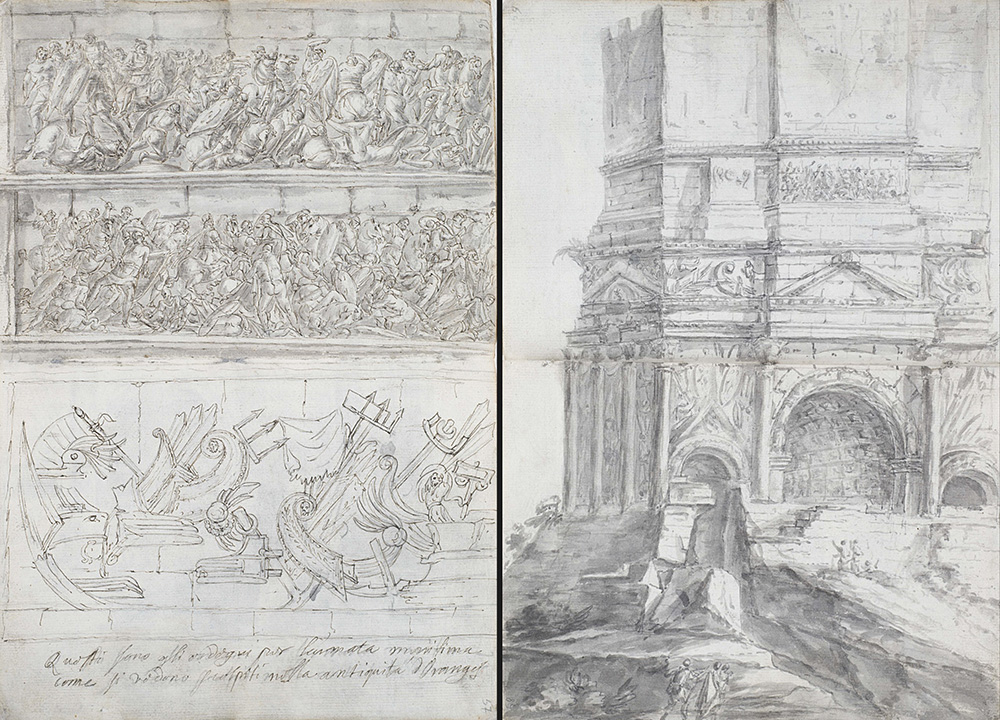 Questi sono gli ordegni per l'armata maritima
come si vedono scolpiti nella antiquita d'Oranges